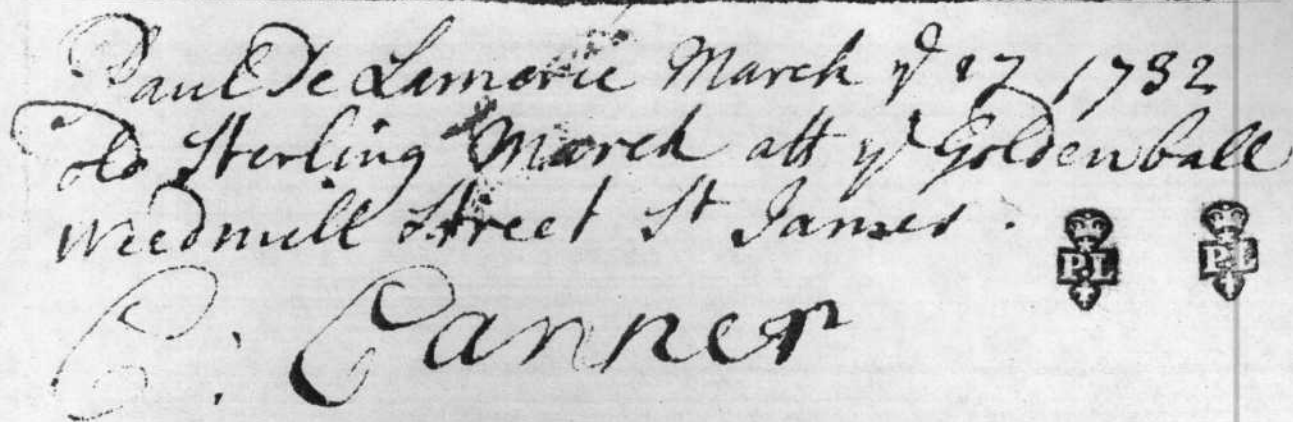 Paul De Lamerie March yᵉ 17 1732
old Sterling March att yᵉ Goldenball
Wiedmill Street St James.
PL PL
C: Canner